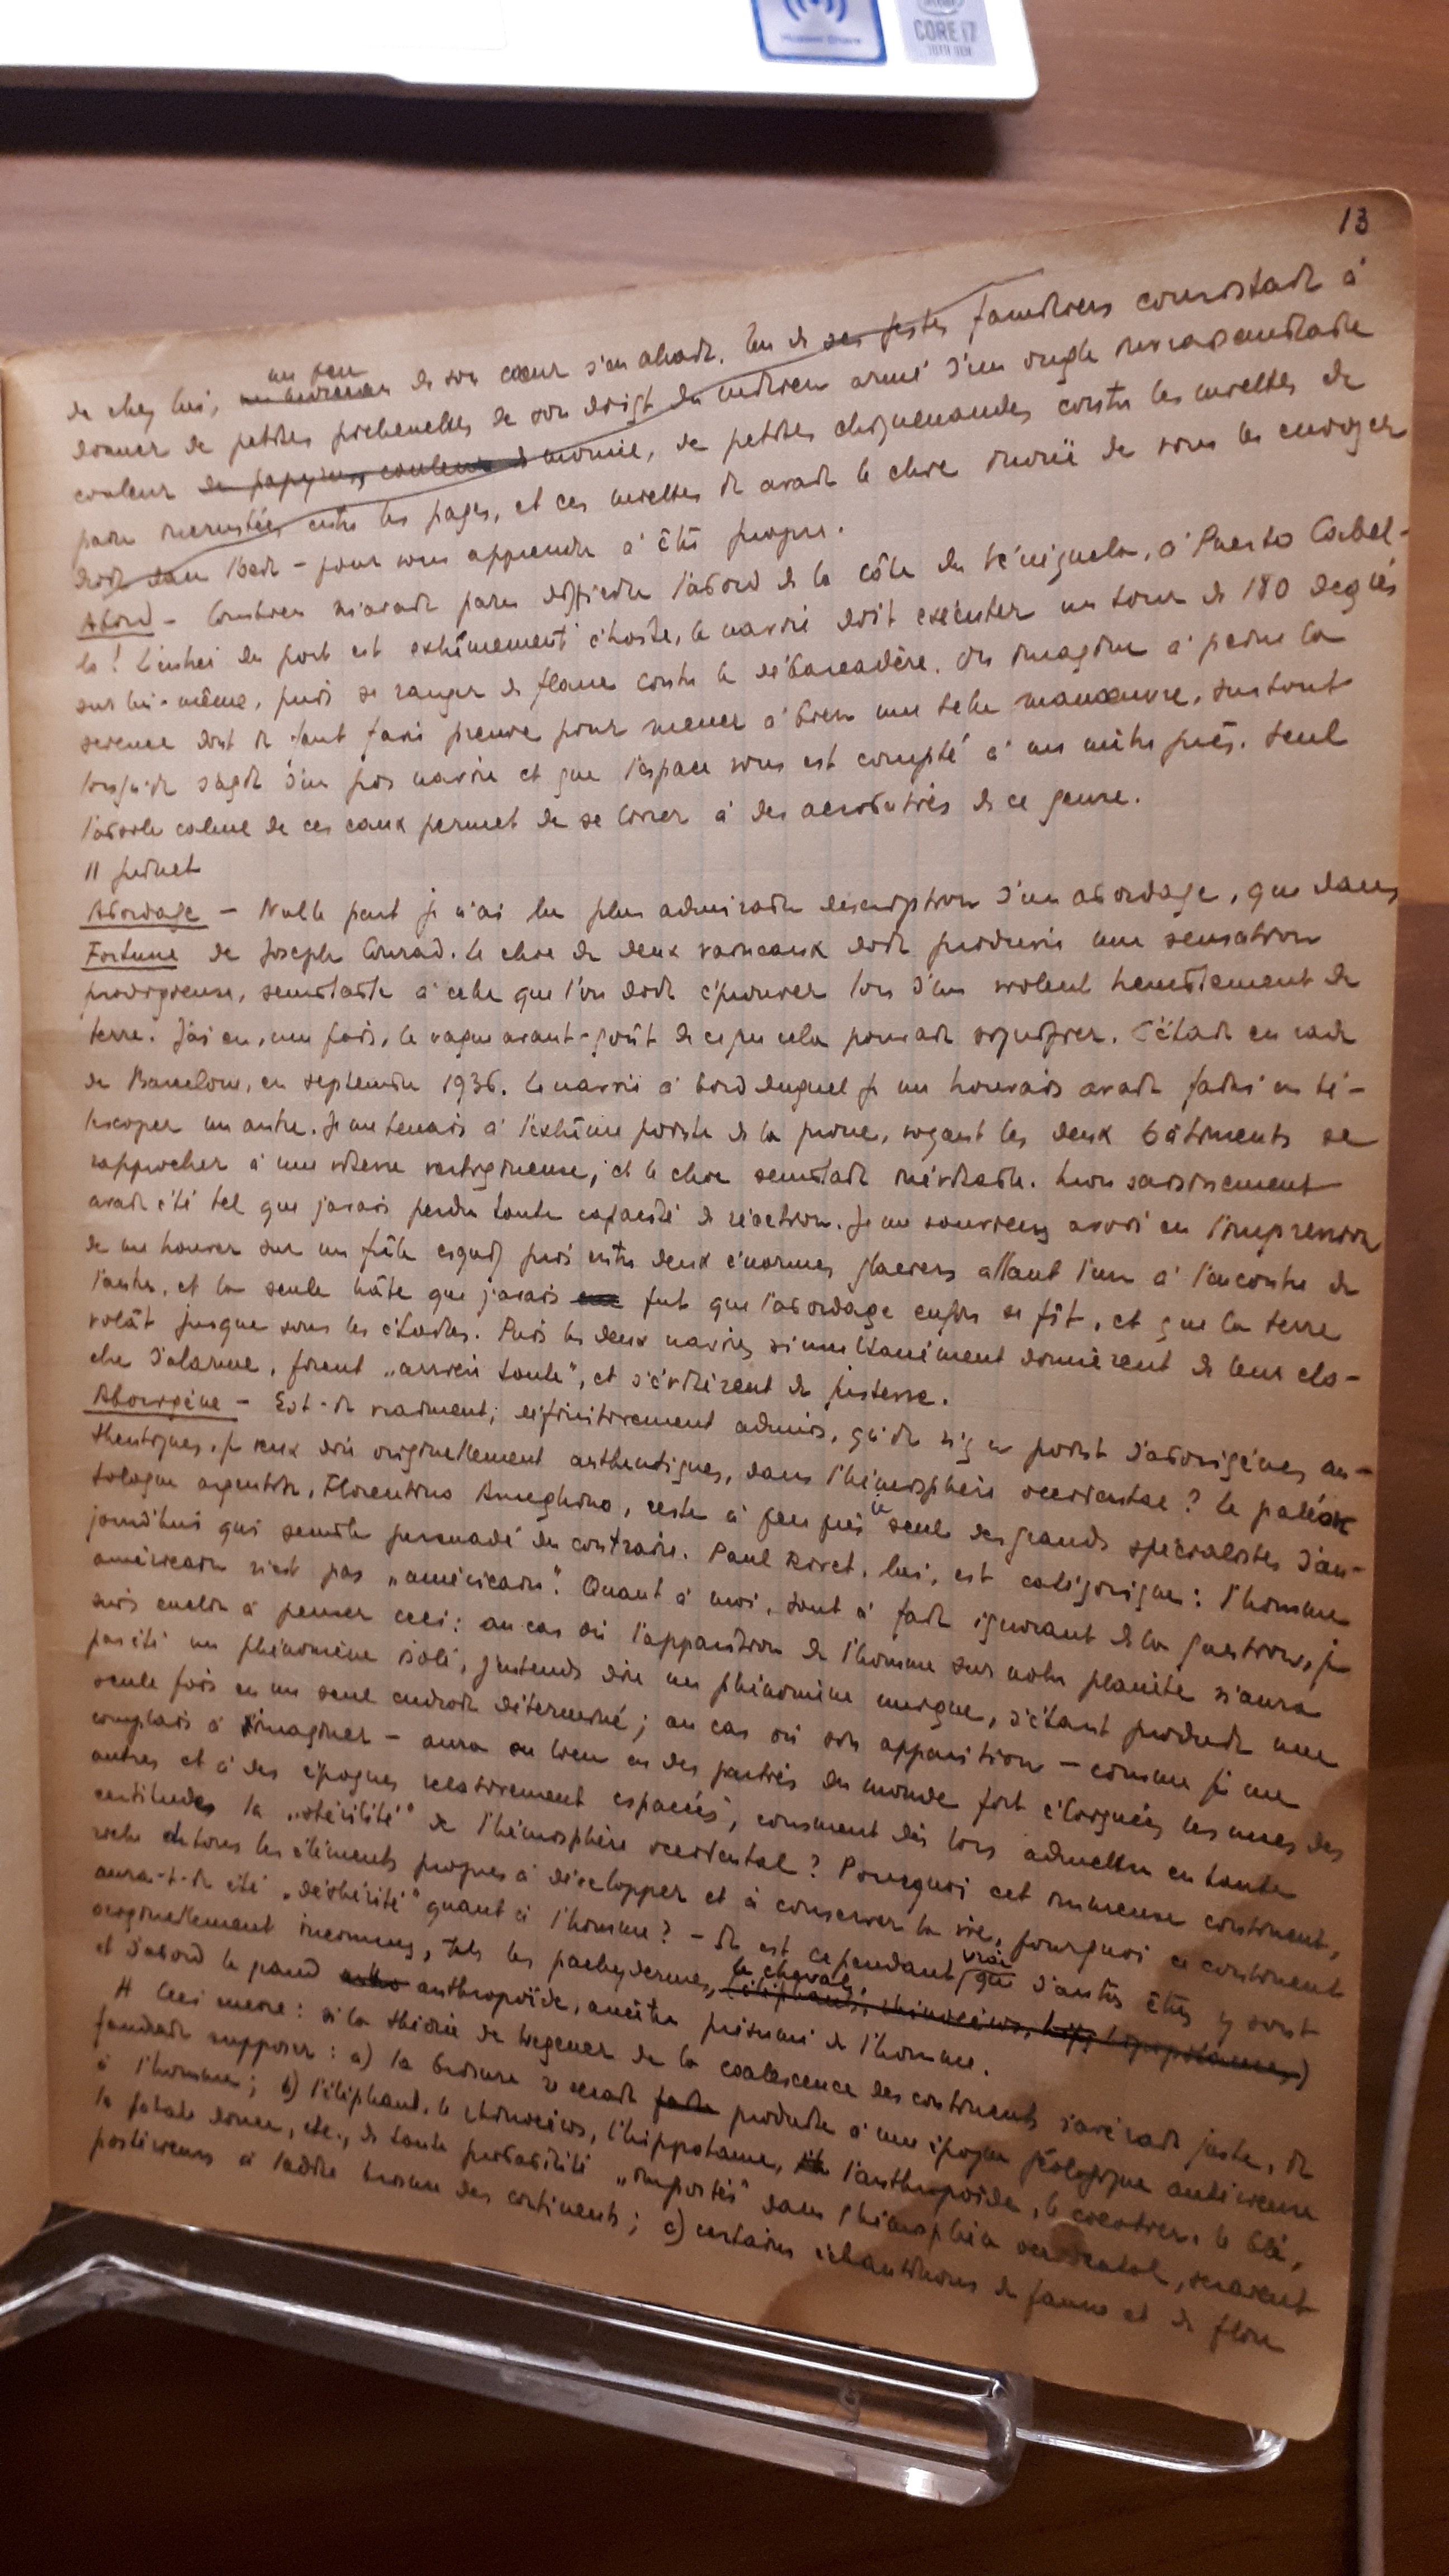 CORE i7
13
de chez lui, un peu de son cœur s'en allait. Un de ses gestes familiers consistait à
donner de petites pichenettes de son doigt du milieu armé d'un ongle invraisemblable
couleur de papyrus, couleur de momie, de petites chiquenaudes contre les miettes de
pain incrustées entre les pages, et ces miettes il avait le chic inouï de vous les envoyer
droit dans l'œil – pour vous apprendre à être propre.
Abord – Combien m'avait paru difficile l'abord de la côte du Vénézuela, à Puerto Cabel-
lo! L'entrée du port est extrêmement étroite, le navire doit exécuter un tour de 180 degrés
sur lui-même, puis se ranger de flanc contre le débarcadère. On imagine à peine la
science dont il faut faire preuve pour mener à bien une telle manœuvre, surtout
lorsqu'il s'agit d'un gros navire et que l'espace vous est compté à un mètre près. Seul
calme de ces eaux permet de se livrer à des acrobaties de ce genre.
11 juillet
Abordage – Nulle part je n'ai lu plus admirable description d'un abordage, que dans
Fortune de Joseph Conrad. Le choc de deux vaisseaux doit produire une sensation
prodigieuse, semblable à celle que l'on doit éprouver lors d'un violent tremblement de
terre. J'ai eu, une fois, le vague avant-goût de ce que cela pouvait signifier. C'était en rade
de Barcelone, en septembre 1936. Le navire à bord duquel je me trouvais avait failli en té-
lescoper un autre. Je me tenais à l'extrême pointe de la proue, voyant les deux bâtiments se
rapprocher à une vitesse vertigineuse, et le choc semblait inévitable. Mon saisissement
avait été tel que j'avais perdu toute capacité de réaction. Je me souviens avoir eu l'impression
de me trouver sur un frêle esquif pris entre deux énormes glaciers allant l'un à l'encontre de
l'autre, et la seule hâte que j'avais fut que l'abordage enfin se fît, et que la terre
volât jusque sous les étoiles. Puis les deux navires simultanément donnèrent de leur clo-
che d'alarme, firent „arrière toute", et s'évitèrent de justesse.
Aborigène – Est-il vraiment, définitivement admis, qu'il n'y a point d'aborigènes au-
thentiques, je veux dire originellement authentiques, dans l'hémisphère occidental? Le paléon
tologue argentin, Florentino Ameghino, reste à peu près le seul des grands spécialistes d'au-
jourd'hui qui semble persuadé du contraire. Paul Rivet, lui, est catégorique: l'homme
américain n'est pas „américain". Quant à moi, tout à fait ignorant de la question, je
suis enclin à penser ceci: au cas où l'apparition de l'homme sur notre planète n'aura
pas été un phénomène isolé, j'entends dire un phénomène unique, s'étant produit une
seule fois en un seul endroit déterminé; au cas où son apparition – comme je me
complais à l'imaginer – aura eu lieu en des parties du monde fort éloignées les unes des
autres et à des époques relativement espacées, comment dès lors admettre en toute
certitude la „stérilité" de l'hémisphère occidental? Pourquoi cet immense continent,
riche de tous les éléments propres à développer et à conserver la vie, pourquoi ce continent
aura-t-il été „déshérité" quant à l'homme? – Il est cependant vrai que d'autres êtres y sont
originellement inconnus, tels les pachydermes, le cheval, (éléphants, rhinocéros, hippopotames)
et d'abord le grand anthropoïde, ancêtre présumé de l'homme.
# Ceci encore: si la théorie de Wegener de la coalescence des continents s'avérait juste, il
faudrait supposer: a) la brisure se serait produite à une époque géologique antérieure
à l'homme; b) l'éléphant, le rhinocéros, l'hippopotame, l'anthropoïde, le cocotier, le blé,
la patate douce, etc., de toute probabilité „importés" dans l'hémisphère occidental, seraient
postérieurs à ladite brisure des continents; c) certains échantillons de faune et de flore